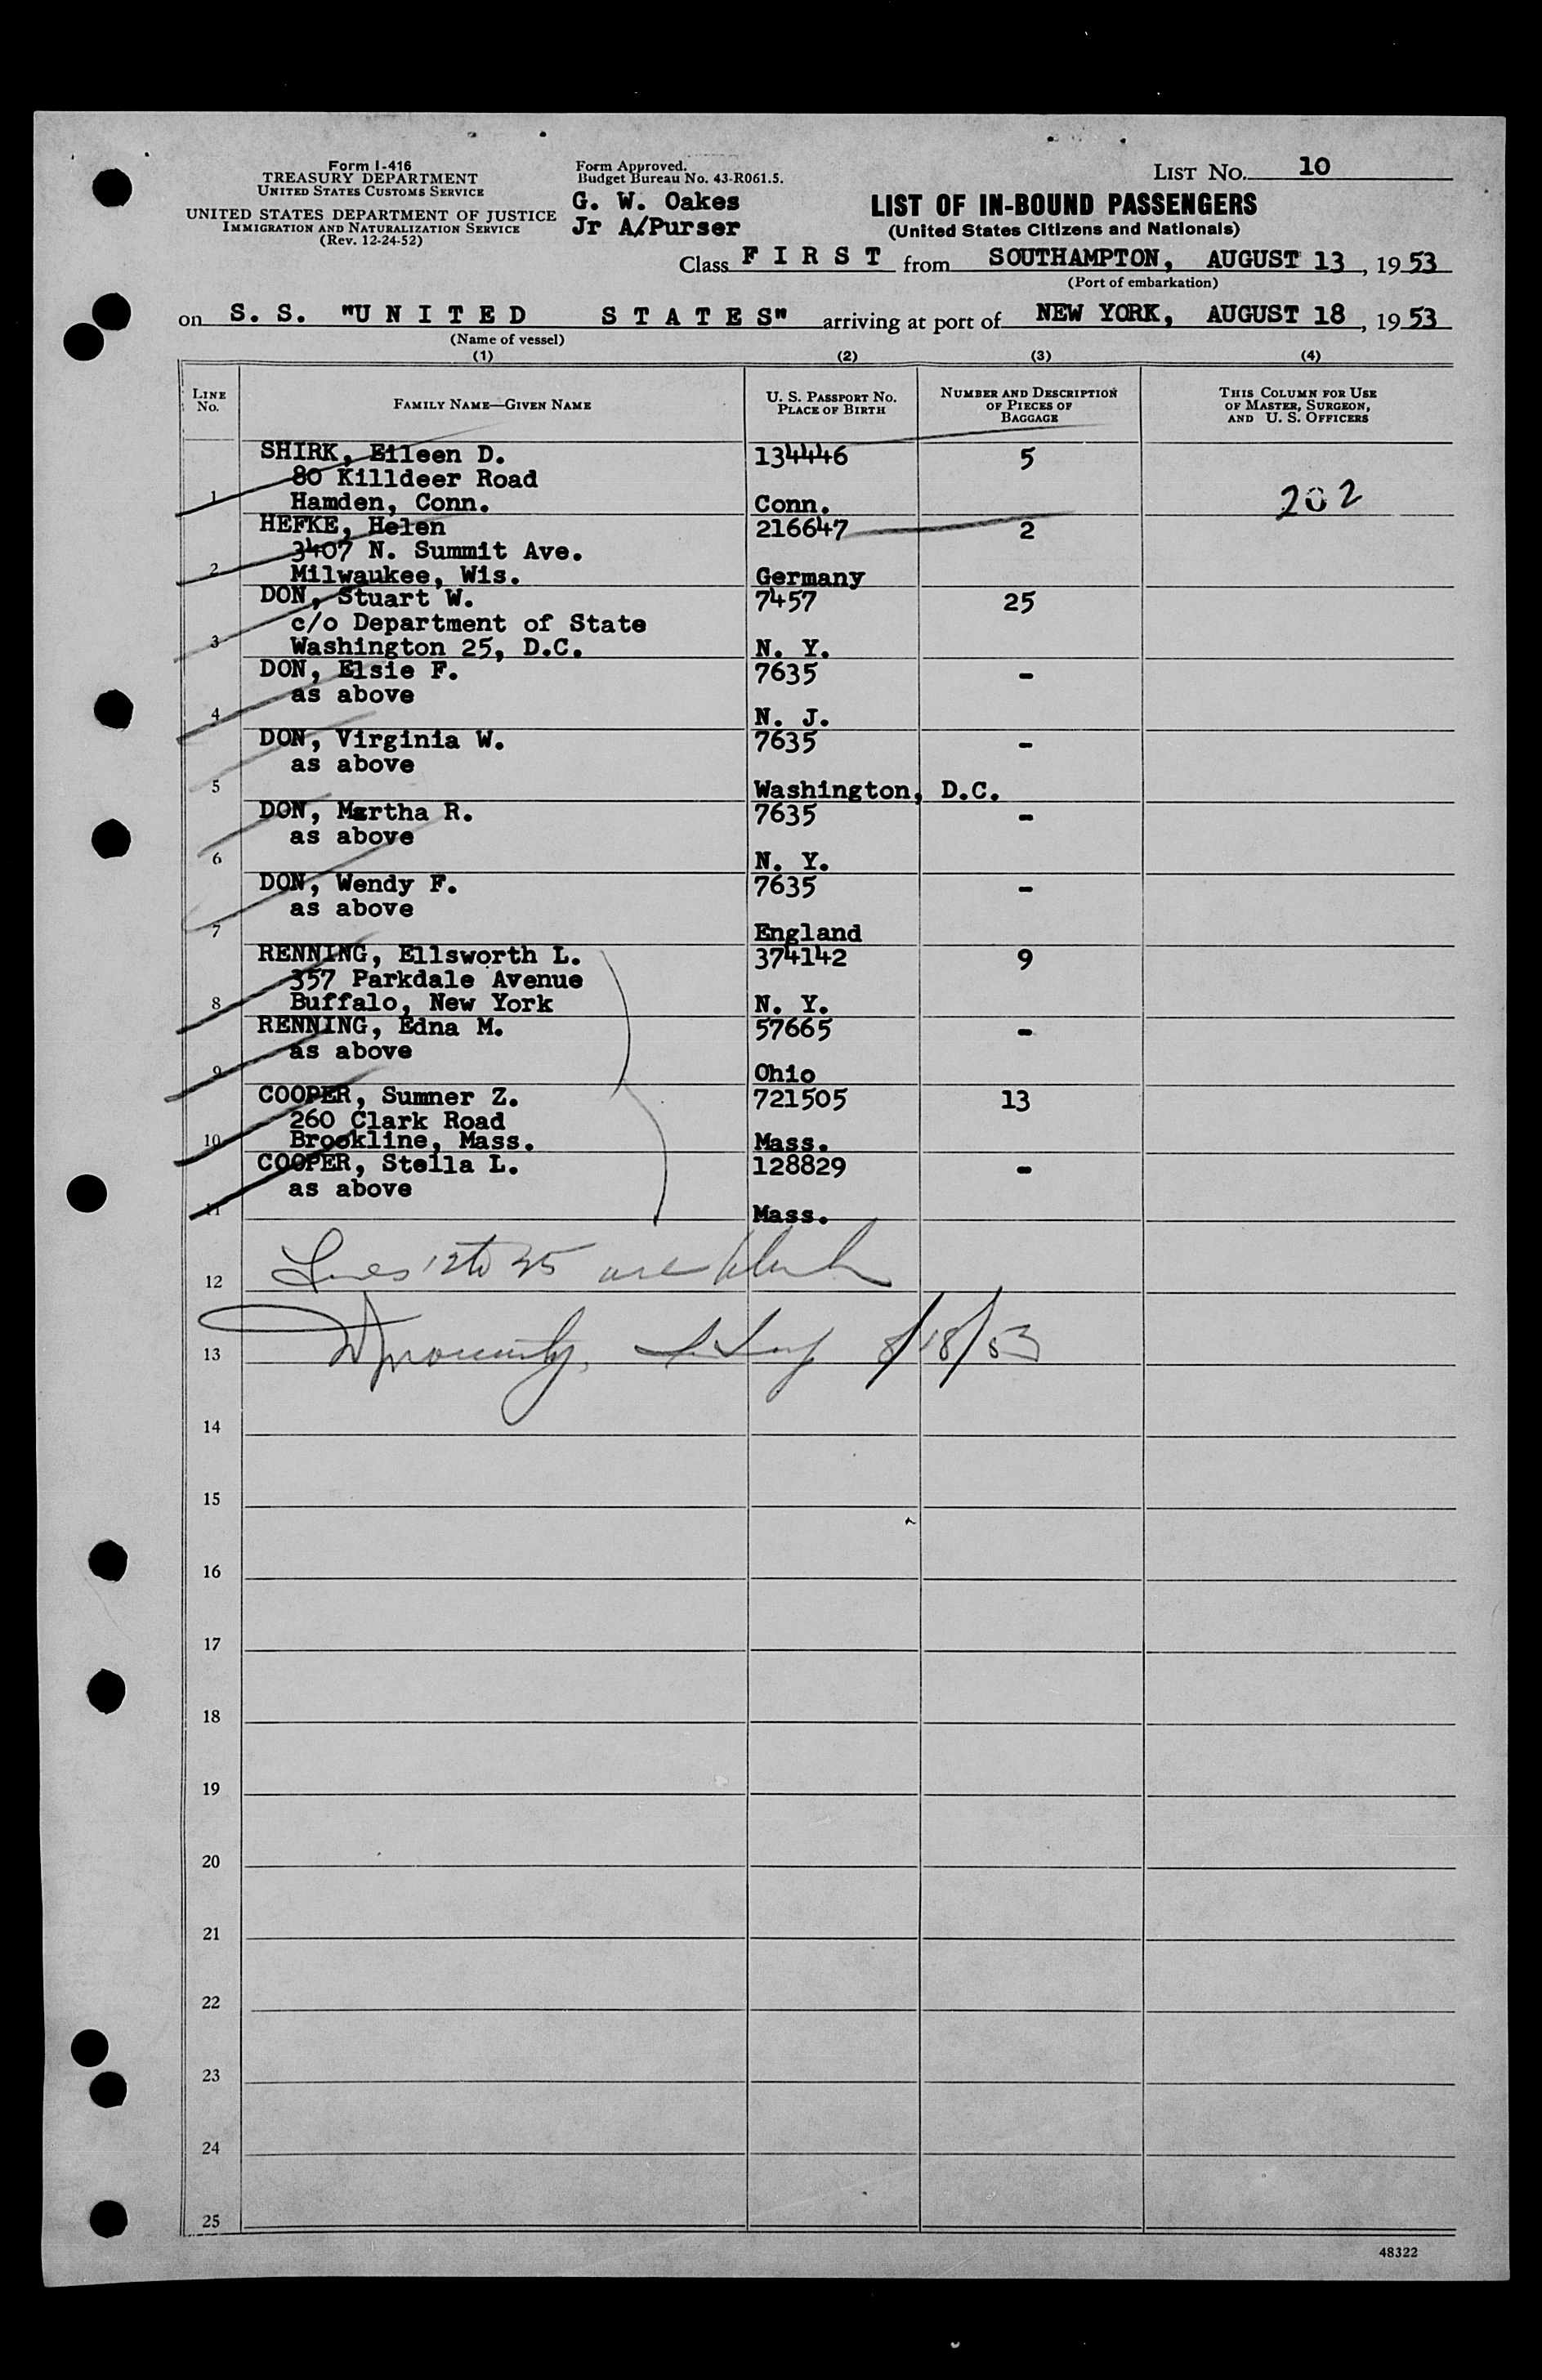 Form I-416
TREASURY DEPARTMENT
UNITED STATES CUSTOMS SERVICE
UNITED STATES DEPARTMENT OF JUSTICE
IMMIGRATION AND NATURALIZATION SERVICE
(Rev. 12-24-52)
Form Approved.
Budget Bureau No. 43-R061.5.
G. W. Oakes
Jr A/Purser
LIST NO. 10
LIST OF IN-BOUND PASSENGERS
(United States Citizens and Nationals)
Class F I R S T from SOUTHAMPTON, AUGUST 13, 1953
(Port of embarkation)
on S. S. "U N I T E D S T A T E S" arriving at port of NEW YORK, AUGUST 18, 1953
(Name of vessel)
(1) (2) (3) (4)
LINE No. FAMILY NAME—GIVEN NAME U. S. PASSPORT NO. PLACE OF BIRTH NUMBER AND DESCRIPTION OF PIECES OF BAGGAGE THIS COLUMN FOR USE OF MASTER, SURGEON, AND U. S. OFFICERS
SHIRK, Eileen D. 134446 5
80 Killdeer Road
1 Hamden, Conn. Conn. 202
HEFKE, Helen 216647 2
3407 N. Summit Ave.
2 Milwaukee, Wis. Germany
DON, Stuart W. 7457 25
c/o Department of State
3 Washington 25, D.C. N. Y.
DON, Elsie F. 7635 -
as above
4 N. J.
DON, Virginia W. 7635 -
as above
5 Washington, D.C.
DON, Martha R. 7635 -
as above
6 N. Y.
DON, Wendy F. 7635 -
as above
7 England
RENNING, Ellsworth L. 374142 9
357 Parkdale Avenue
8 Buffalo, New York N. Y.
RENNING, Edna M. 57665 -
as above
9 Ohio
COOPER, Sumner Z. 721505 13
260 Clark Road
10 Brookline, Mass. Mass.
COOPER, Stella L. 128829 -
as above
11 Mass.
12 Lines 12 to 25 are blank
13 8/18/53
14
15
16
17
18
19
20
21
22
23
24
25
48322